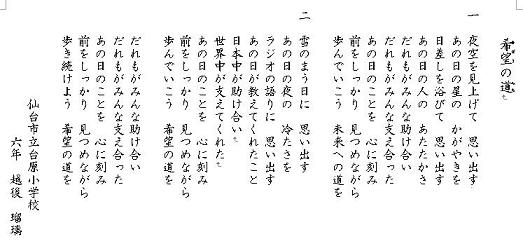 希望の道
一
夜空を見上げて　思い出す
あの日の星の　かがやきを
日差しを浴びて　思い出す
あの日の人の　あたたかさ
だれもがみんな助け合い
だれもがみんな支え合った
あの日のことを　心に刻み
前をしっかり　見つめながら
歩んでいこう　未来への道を
二
雪のまう日に　思い出す
あの日の夜の　冷たさを
ラジオの語りに　思い出す
あの日が教えてくれたこと
日本中が助け合い
世界中が支えてくれた
あの日のことを　心に刻み
前をしっかり　見つめながら
歩んでいこう　希望の道を
だれもがみんな助け合い
だれもがみんな支え合った
あの日のことを　心に刻み
前をしっかり　見つめながら
歩き続けよう　希望の道を
仙台市立台原小学校
六年　越後　瑠璃